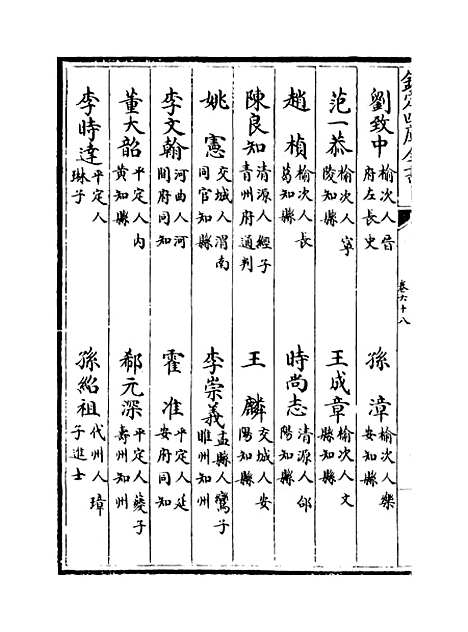 欽定四庫全書
卷六十八
劉致中榆次人晉府左長史
孫漳榆次人樂安知縣
范一恭榆次人寧陵知縣
王成章榆次人文縣知縣
趙楨榆次人長葛知縣
時尚志清源人郃陽知縣
陳良知清源人經子青州府通判
王麟交城人安陽知縣
姚憲交城人渭南同官知縣
李崇義盂縣人鸞子睢州知州
李文翰河曲人河間府同知
霍准平定人延安府同知
董大韶平定人内黃知縣
郗元深平定人夔子壽州知州
李時達平定人琳子
孫紹祖代州人璋子進士